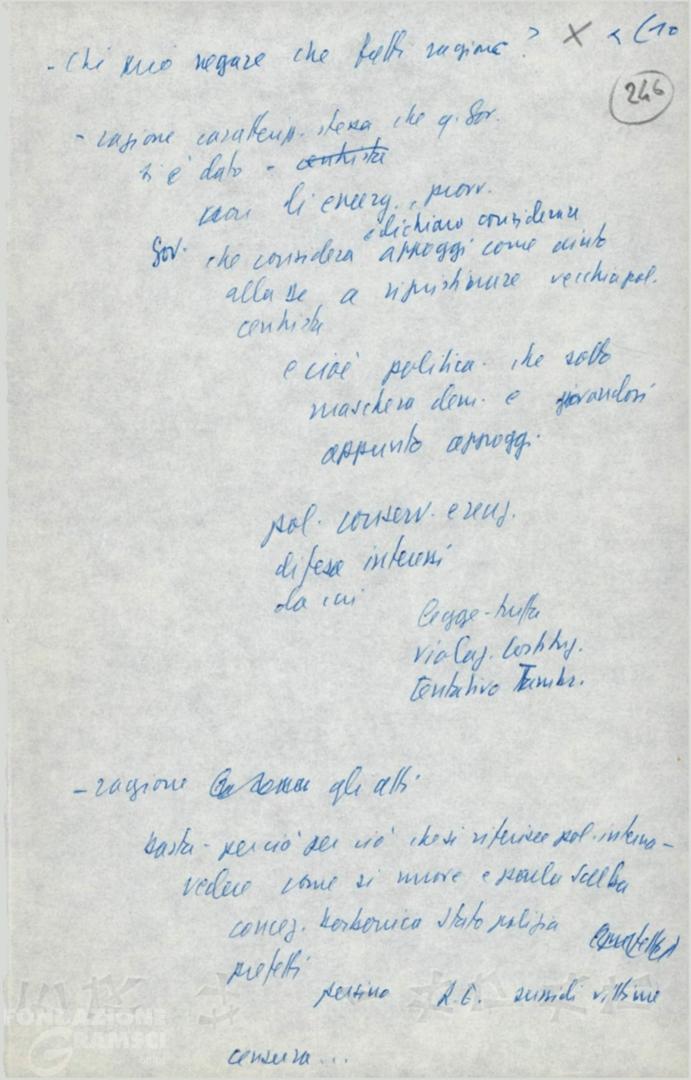 - Chi può negare che fatti ragione? X
246
- ragione caratteriz. stessa che q. Gov.
si è dato - centrista
di emerg., provv.
e dichiara considerare
Gov. che considera appoggi come aiuto
alla DC a ripristinare vecchia pol.
centrista
e cioè politica che sotto
maschera dem. e giovandosi
appunto appoggi
pol. conserv. e reaz.
difesa interessi
da cui
legge-truffa
violaz. Costituz.
tentativo Tambr.
- ragione gli atti
basta - perciò per ciò che si riferisce pol. interna -
vedere come si muove e parla Scelba
concez. borbonica Stato polizia
prefetti
persino sussidi vittime
censura...
FONDAZIONE
GRAMSCI